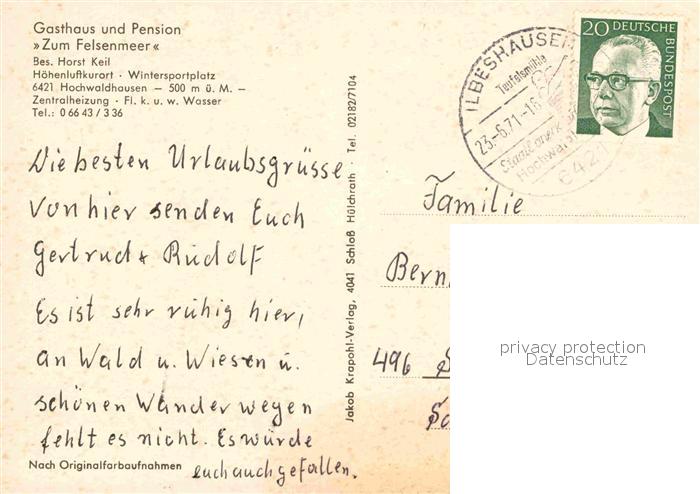 Gasthaus und Pension
»Zum Felsenmeer«
Bes. Horst Keil
Höhenluftkurort · Wintersportplatz
6421 Hochwaldhausen — 500 m ü. M. –
Zentralheizung · Fl. k. u. w. Wasser
Tel.: 0 66 43 / 3 36
Die besten Urlaubsgrüsse
von hier senden Euch
Gertrud + Rudolf
Es ist sehr ruhig hier,
an Wald u. Wiesen u.
schönen Wander wegen
fehlt es nicht. Es würde
euch auch gefallen.
Nach Originalfarbaufnahmen
Jakob Krapohl-Verlag, 4041 Schloß Hülchrath · Tel. 02182/7104
ILBESHAUSEN
Teufelsmühle
23.-6.71-16
6421
20 DEUTSCHE
BUNDESPOST
Familie
Bern
496 S
privacy protection
Datenschutz